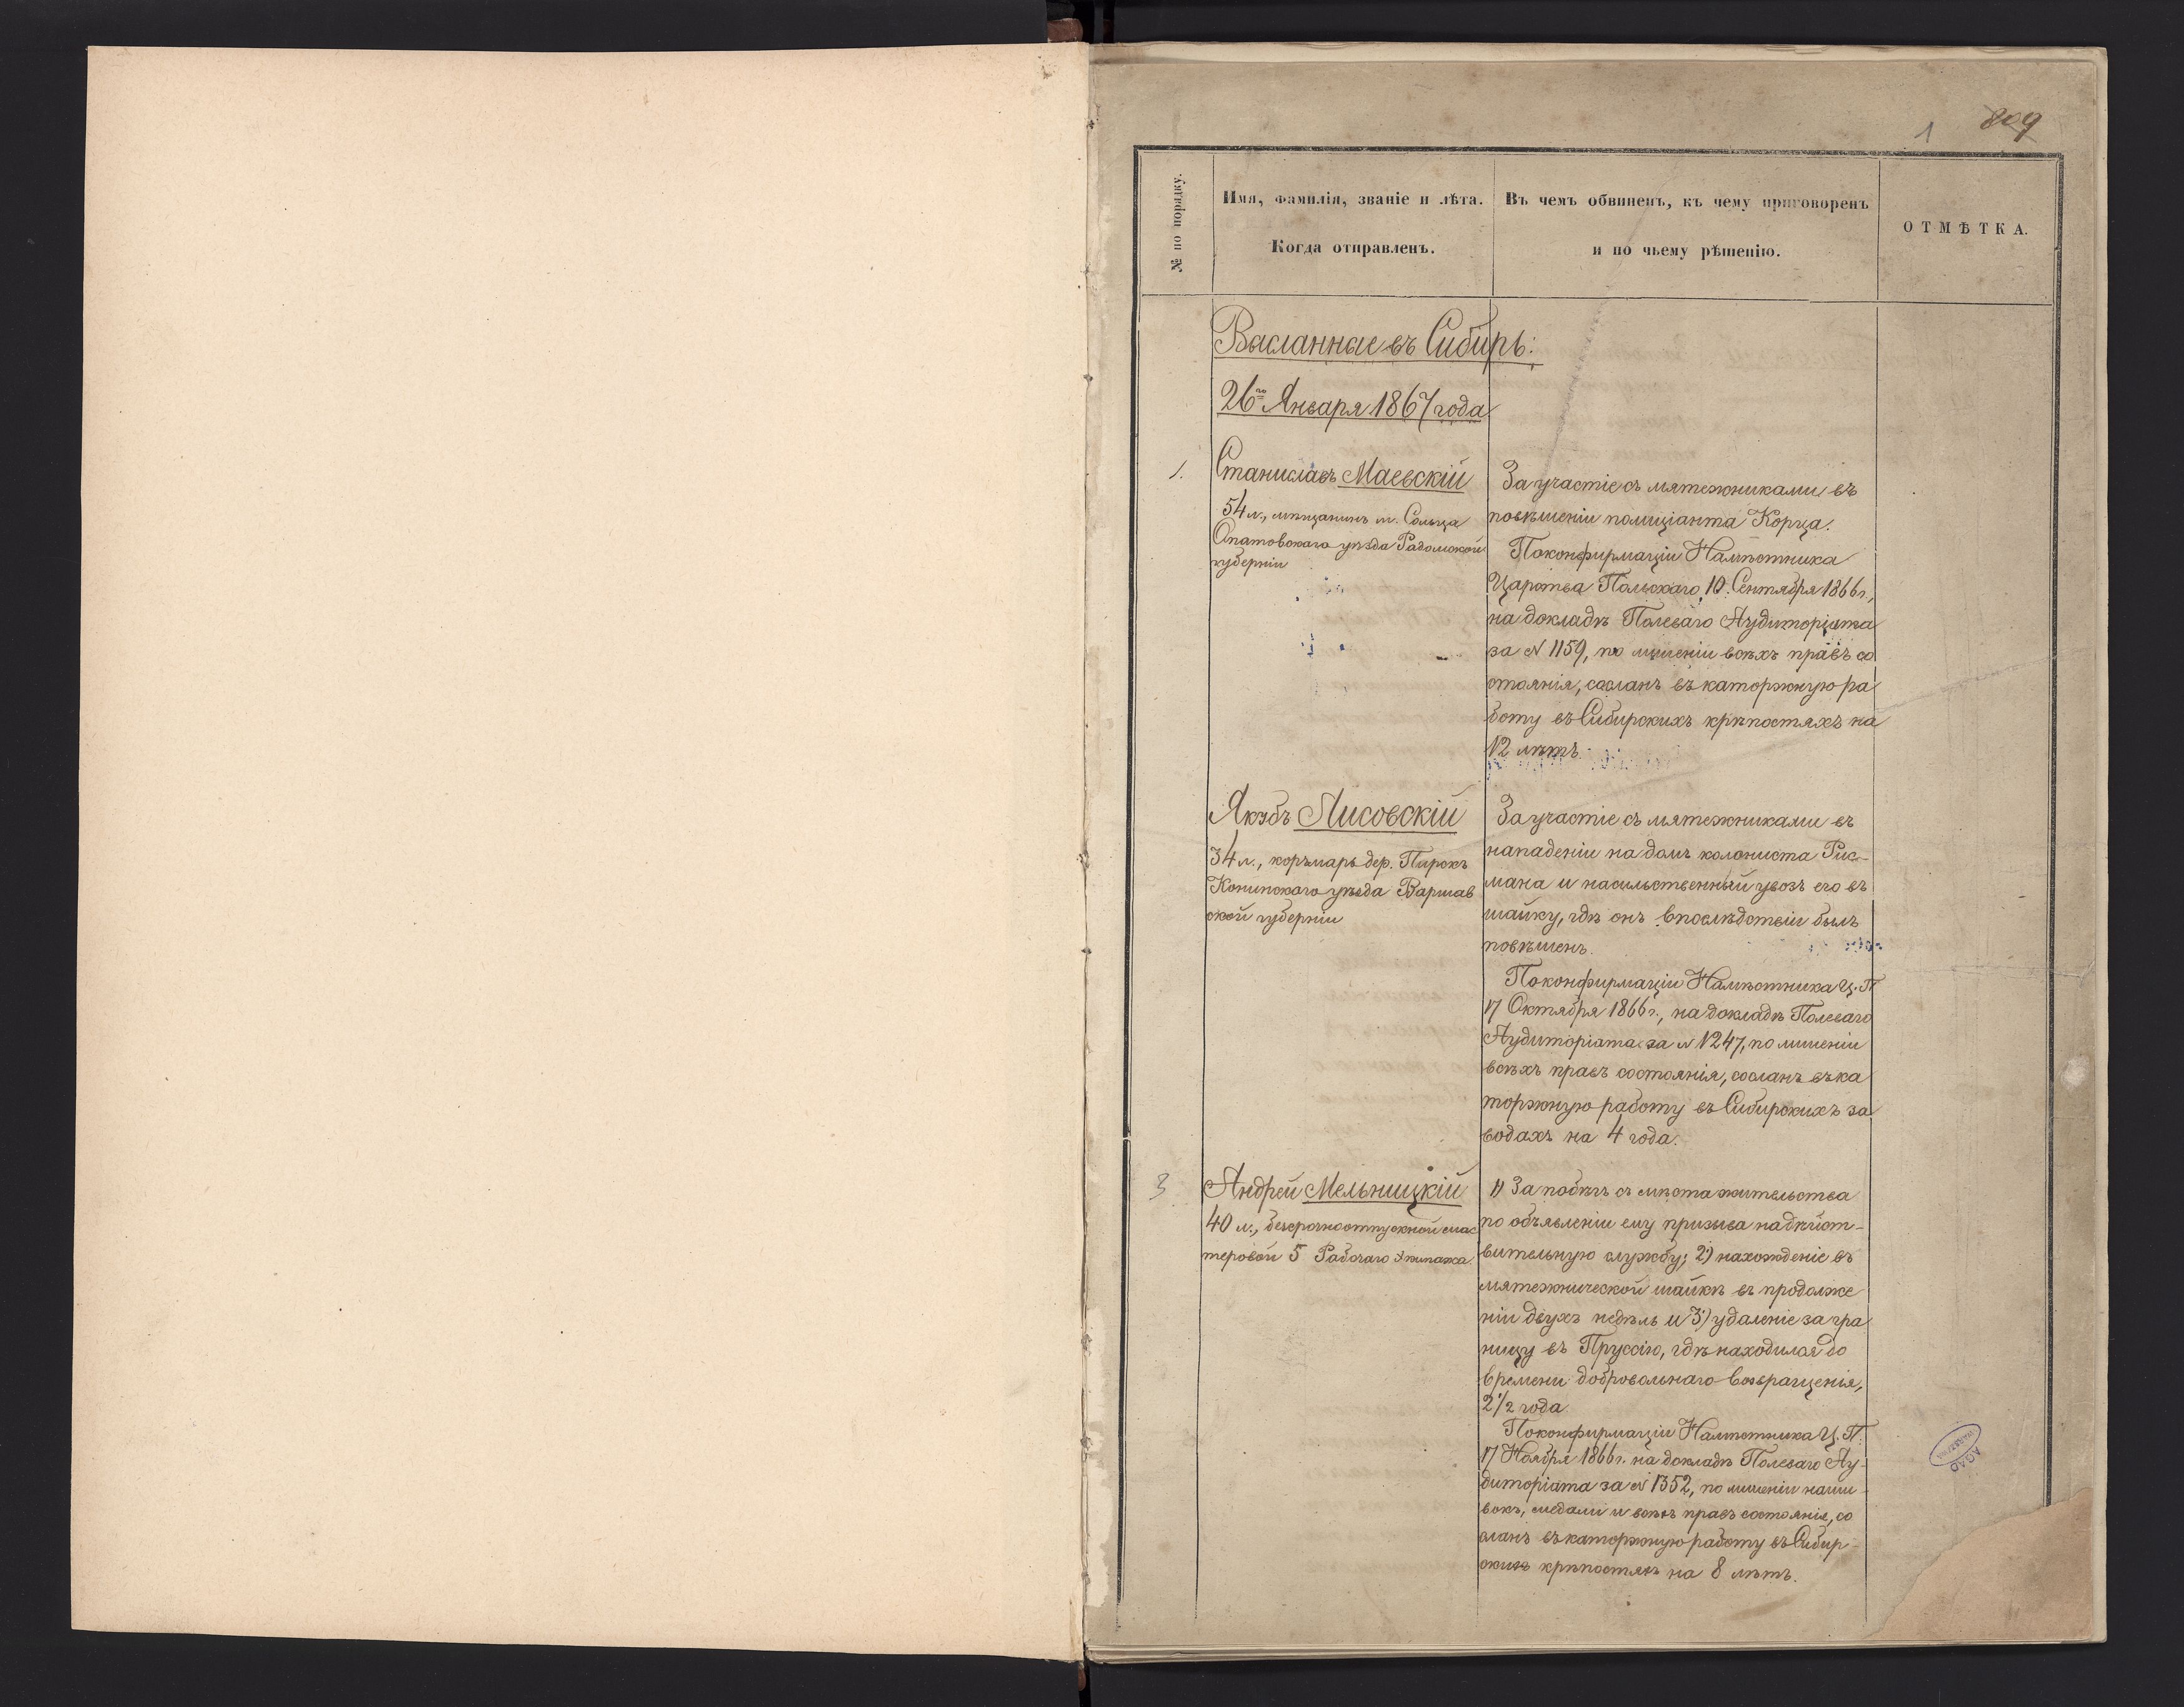 1 809
№ по порядку.
Имя, фамилія, званіе и лѣта.
Когда отправленъ.
Въ чемъ обвиненъ, къ чему приговоренъ
и по чьему рѣшенію.
ОТМѢТКА.
Высланные въ Сибирь:
26го Января 1867 года
1.
Станиславъ Маевскій
54 л., мѣщанинъ м. Сольца
Опатовскаго уѣзда Радомской
губерніи
За участіе съ мятежниками въ
повѣшеніи полиціанта Корца.
По конфирмаціи Намѣстника
Царства Польскаго, 10 Сентября 1866 г.,
на докладѣ Полеваго Аудиторіата
за N 1159, по лишеніи всѣхъ правъ со
стоянія, сосланъ въ каторжную ра
боту въ Сибирскихъ крѣпостяхъ на
12 лѣтъ.
Якубъ Лисовскій
34 л., корчмарь дер.
Конинскаго уѣзда Варшав
ской губерніи
За участіе съ мятежниками въ
нападеніи на домъ колониста Рис-
мана и насильственный увозъ его въ
шайку, гдѣ онъ впослѣдствіи былъ
повѣшенъ.
По конфирмаціи Намѣстника Ц. П.
17 Октября 1866 г., на докладѣ Полеваго
Аудиторіата за N 1247, по лишеніи
всѣхъ правъ состоянія, сосланъ въ ка
торжную работу въ Сибирскихъ за
водахъ на 4 года.
3
Андрей Мельницкій
40 л., безсрочноотпускной мас
теровой 5 Рабочаго Экипажа
1) За побѣгъ съ мѣста жительства
по объявленіи ему призыва на дѣйст-
вительную службу; 2) нахожденіе въ
мятежнической шайкѣ въ продолже
ніи двухъ недѣль и 3) удаленіе за гра
ницу въ Пруссію, гдѣ находился до
времени добровольнаго возвращенія,
2 1/2 года.
По конфирмаціи Намѣстника Ц. П.
17 Ноября 1866 г. на докладѣ Полеваго Ау-
диторіата за N 1352, по лишеніи наши-
вокъ, медали и всѣхъ правъ состоянія, со
сланъ въ каторжную работу въ Сибир-
скихъ крѣпостяхъ на 8 лѣтъ.
AGAD